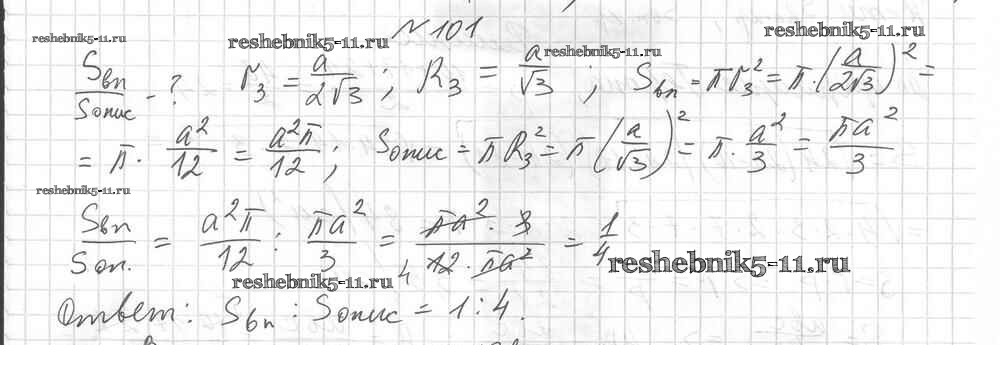 reshebnik5-11.ru reshebnik5-11.ru № 101 reshebnik5-11.ru reshebnik5-11.ru
Sвп/Sопис - ? r₃ = a/2√3 ; R₃ = a/√3 ; Sвп = πr₃² = π·(a/2√3)² =
= π · a²/12 = a²π/12 ; Sопис = πR₃² = π(a/√3)² = π · a²/3 = πa²/3
reshebnik5-11.ru
Sвп/Sоп. = a²π/12 : πa²/3 = πa² · 3/4 12 · πa² = 1/4 reshebnik5-11.ru
reshebnik5-11.ru
Ответ: Sвп : Sопис = 1 : 4.